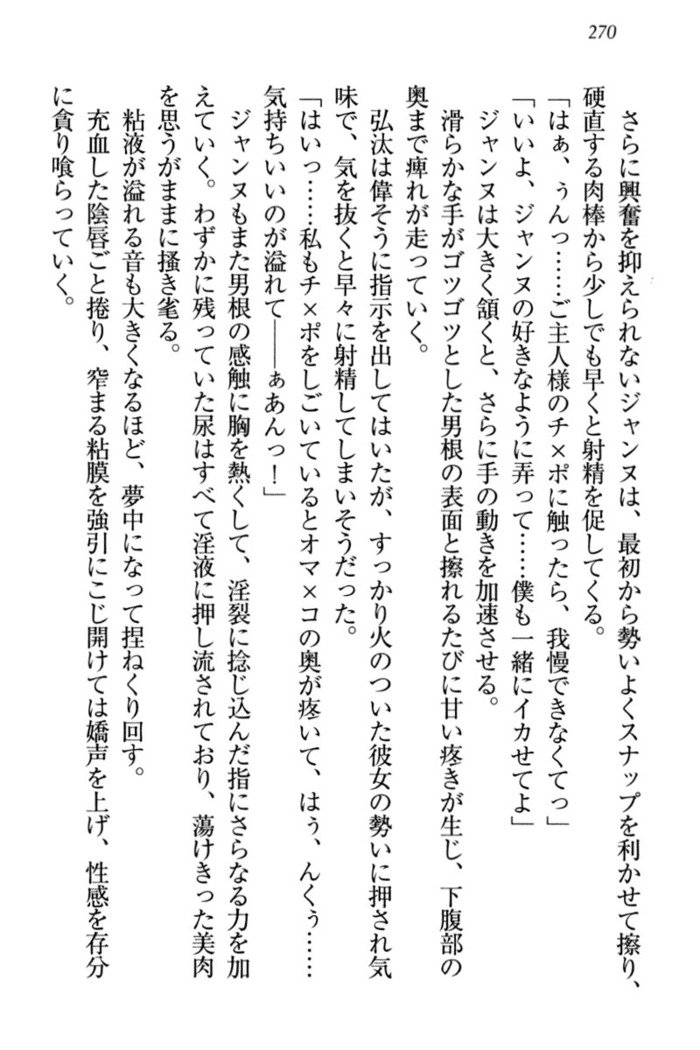 270
さらに興奮を抑えられないジャンヌは、最初から勢いよくスナップを利かせて擦り、
硬直する肉棒から少しでも早くと射精を促してくる。
「はぁ、ぅんっ……ご主人様のチ×ポに触ったら、我慢できなくてっ」
「いいよ、ジャンヌの好きなように弄って……僕も一緒にイカせてよ」
ジャンヌは大きく頷くと、さらに手の動きを加速させる。
滑らかな手がゴツゴツとした男根の表面と擦れるたびに甘い疼きが生じ、下腹部の
奥まで痺れが走っていく。
弘汰は偉そうに指示を出してはいたが、すっかり火のついた彼女の勢いに押され気
味で、気を抜くと早々に射精してしまいそうだった。
「はいっ……私もチ×ポをしごいているとオマ×コの奥が疼いて、はぅ、んくぅ……
気持ちいいのが溢れて――ぁあんっ！」
ジャンヌもまた男根の感触に胸を熱くして、淫裂に捻じ込んだ指にさらなる力を加
えていく。わずかに残っていた尿はすべて淫液に押し流されており、蕩けきった美肉
を思うがままに掻き毟る。
粘液が溢れる音も大きくなるほど、夢中になって捏ねくり回す。
充血した陰唇ごと捲り、窄まる粘膜を強引にこじ開けては嬌声を上げ、性感を存分
に貪り喰らっていく。